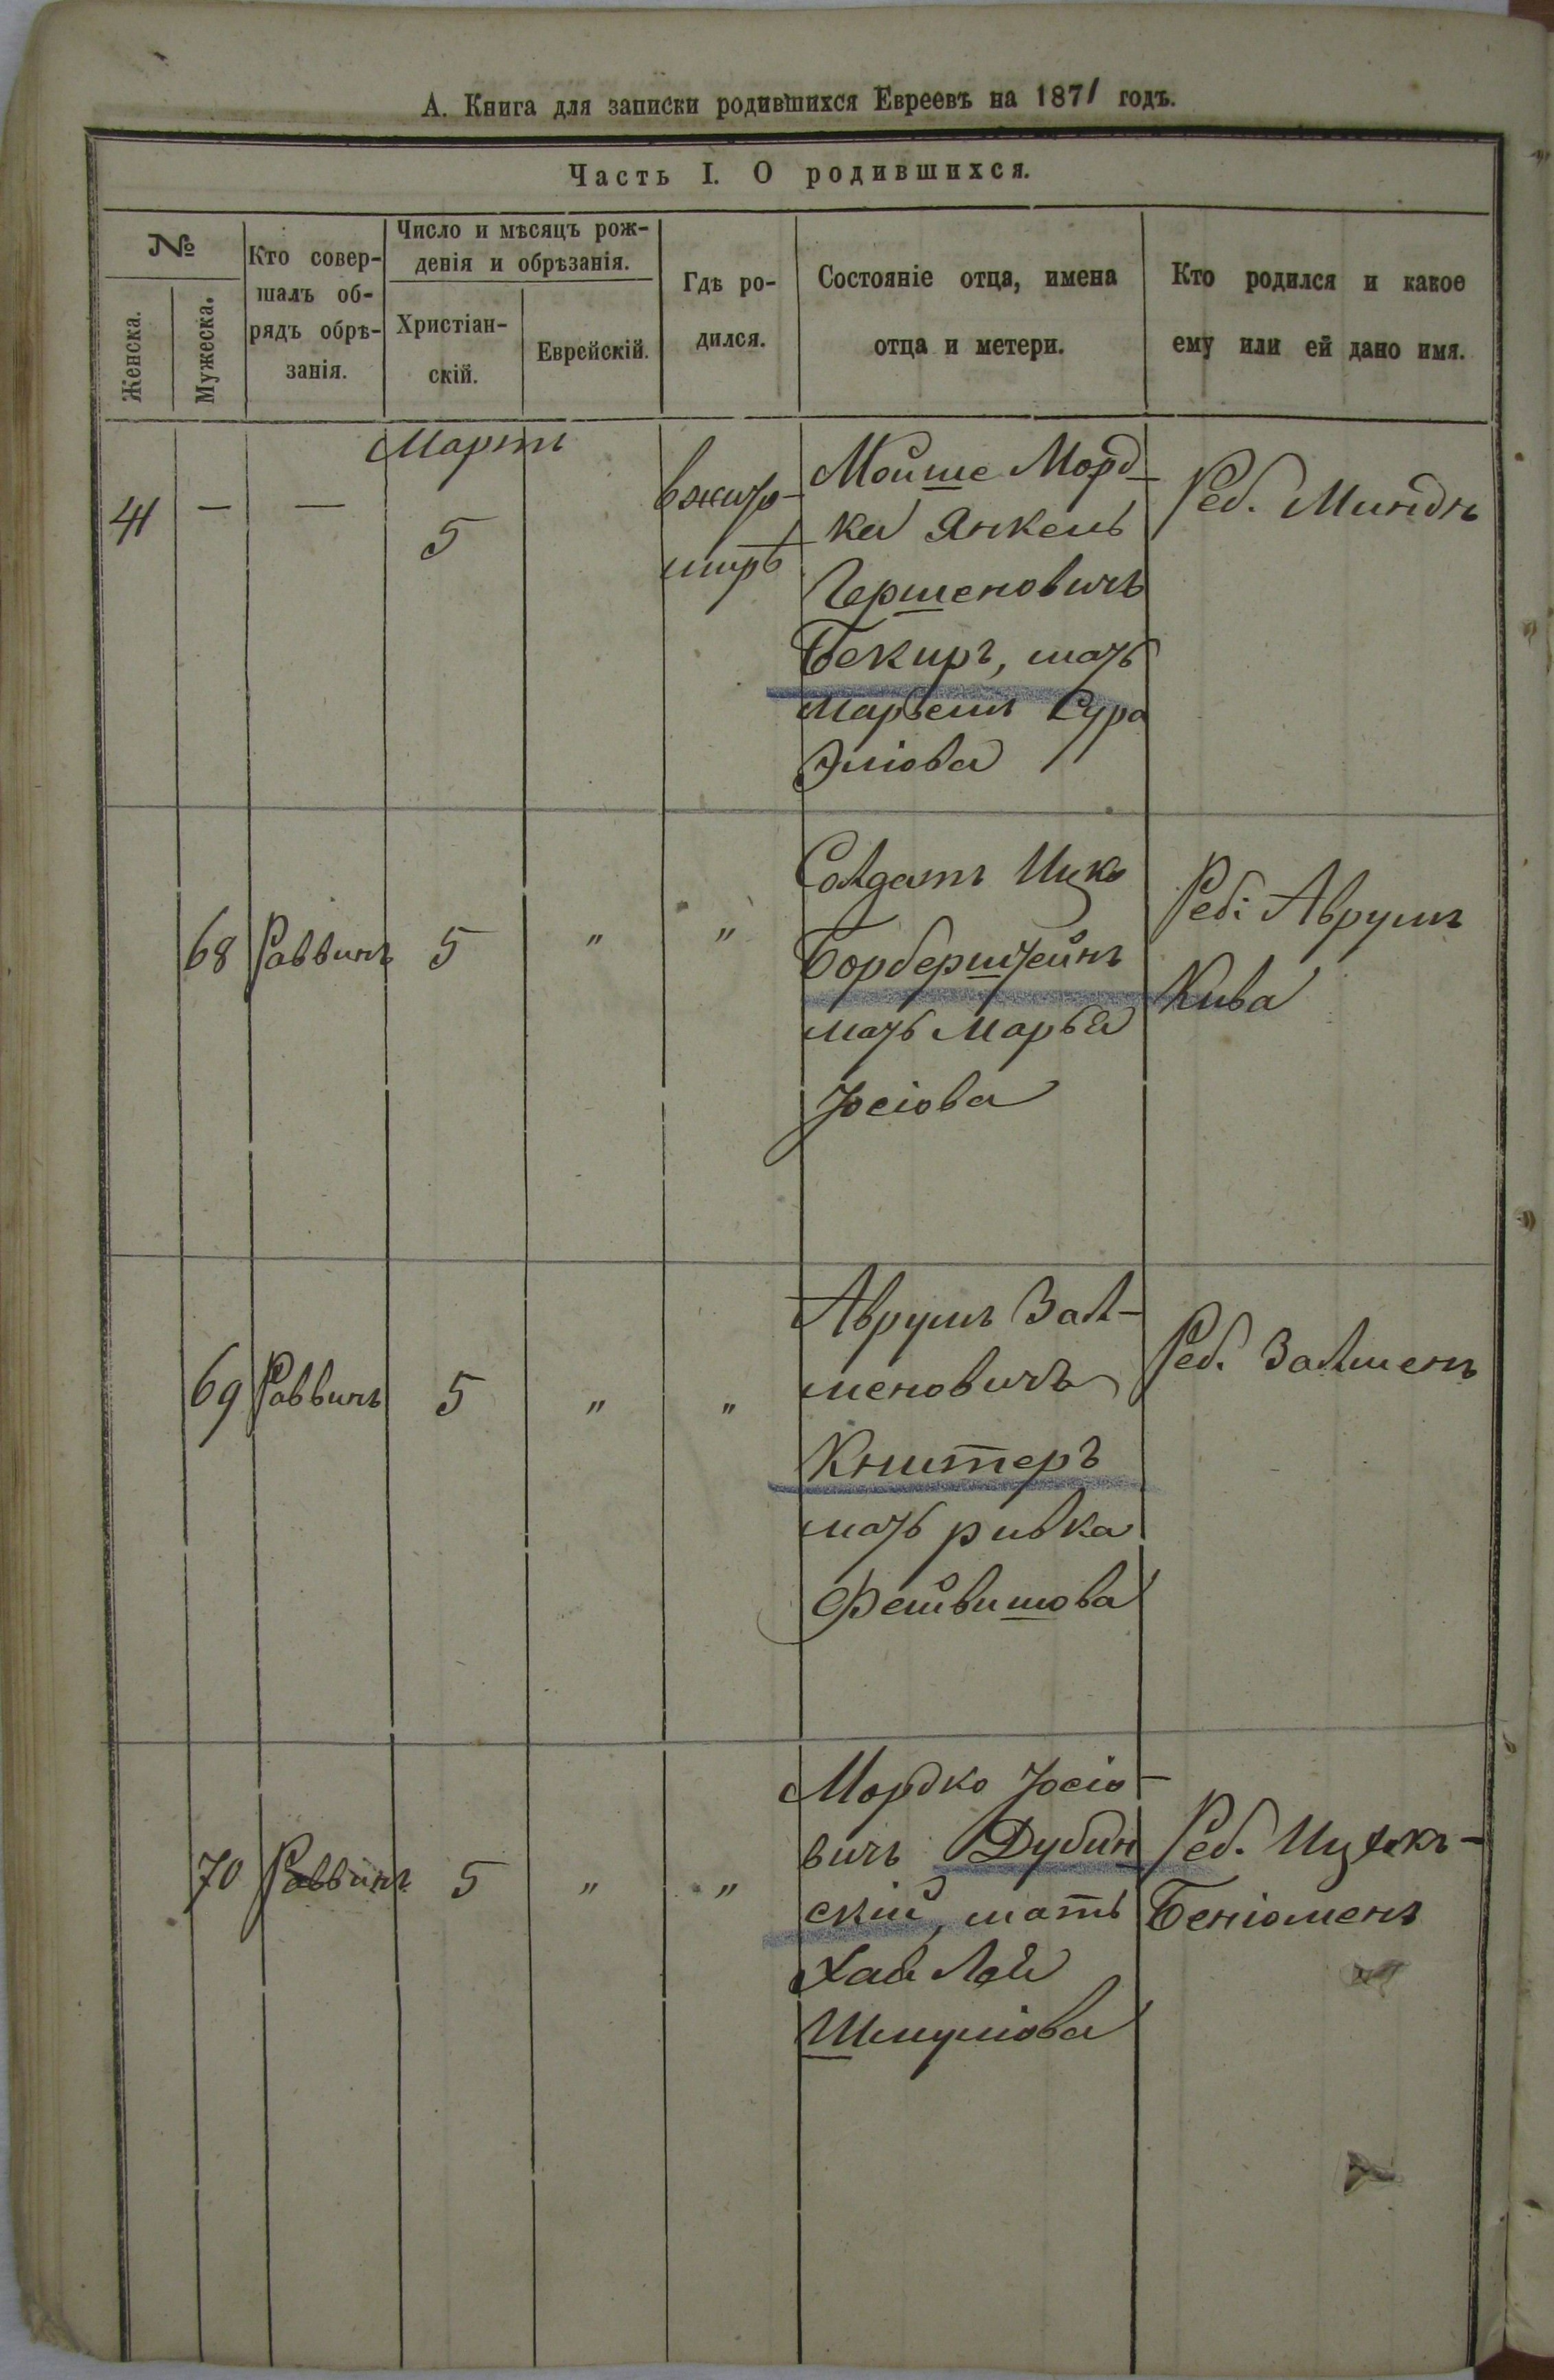 А. Книга для записки родившихся Евреевъ на 1871 годъ.
Часть I. О родившихся.
№
Женска.
Мужеска.
Кто совер-
шалъ об-
рядъ обрѣ-
занія.
Число и мѣсяцъ рож-
денія и обрѣзанія.
Христіан-
скій.
Еврейскій.
Гдѣ ро-
дился.
Состояніе отца, имена
отца и метери.
Кто родился и какое
ему или ей дано имя.
Мартъ
41 — — 5
вжито-
мирѣ
Мойше Морд-
ка Янкель
Гершеновичъ
Бекиръ, мать
Марьемъ Сура
Эліова
Реб. Миндъ
68 Раввинъ 5 " "
Солдатъ Ицко
Борберштейнъ
мать Марья
Іосіова
Реб: Аврумъ
Кива
69 Раввинъ 5 " "
Аврумъ Зал-
меновичъ
Книтеръ
мать ривка
Фейвишова
Реб. Залменъ
70 Раввинъ 5 " "
Мордко Іосіо-
вичъ Дубин
скій, мать
Хая Лея
Шмуліова
Реб. Ицхокъ-
Беніоменъ